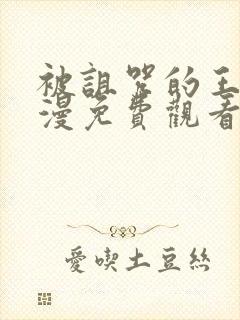 被詛咒的王
漫免費觀看
愛喫土豆絲